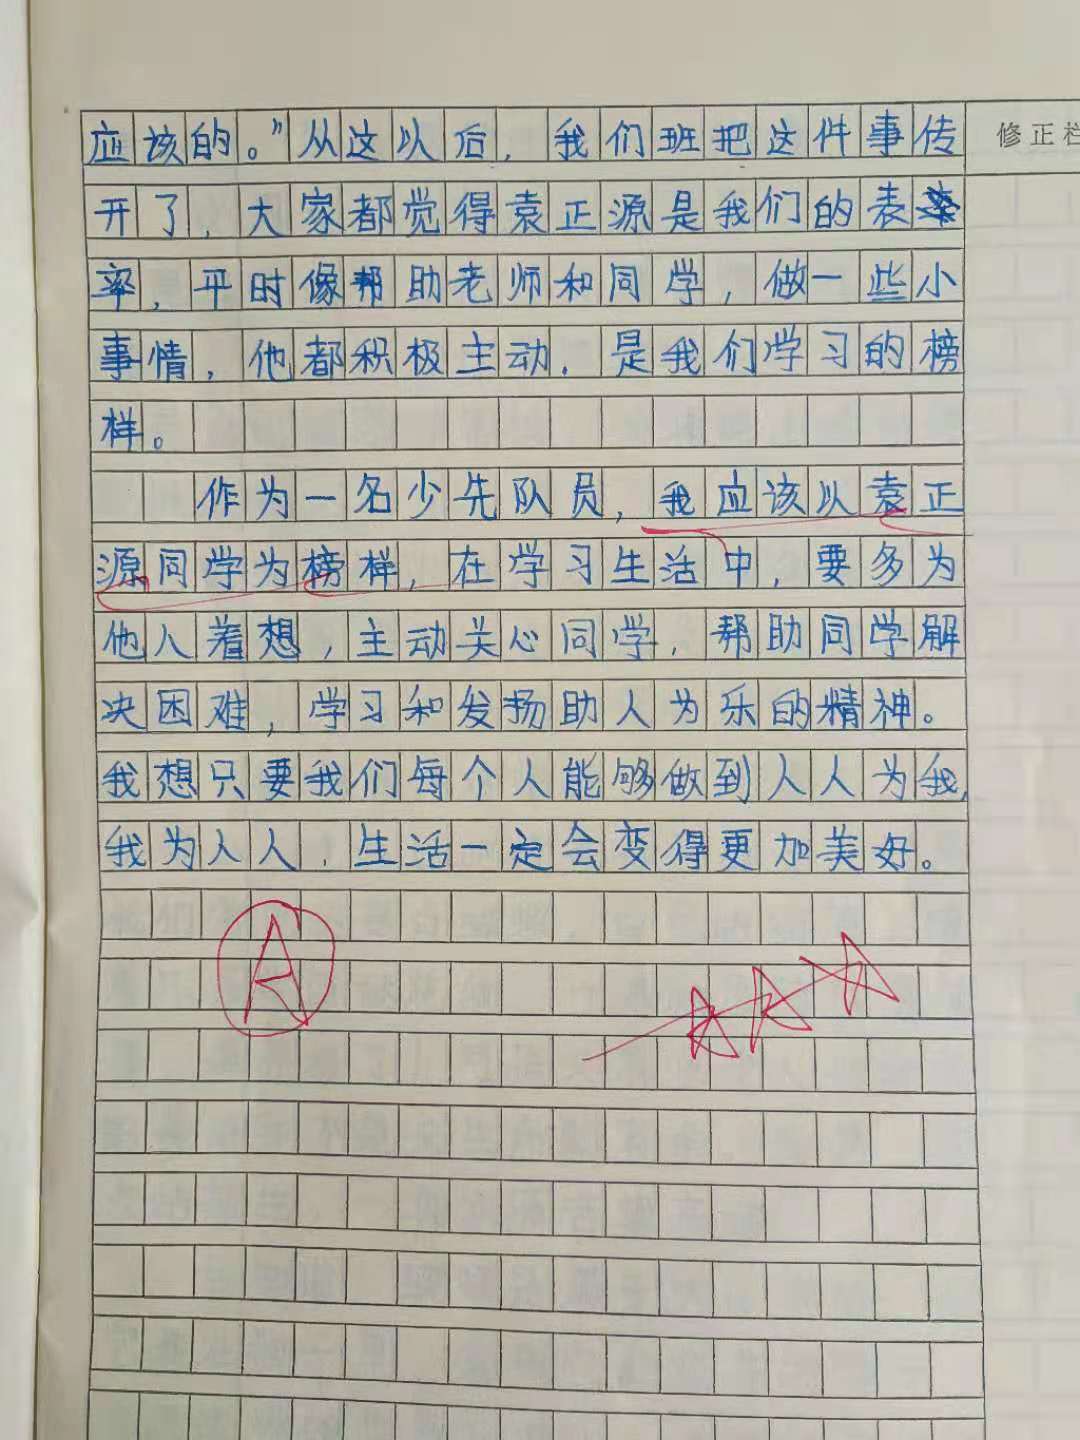 应该的。”从这以后，我们班把这件事传
修正栏
开了，大家都觉得袁正源是我们的表
率，平时像帮助老师和同学，做一些小
事情，他都积极主动，是我们学习的榜
样。
作为一名少先队员，我应该以袁正
源同学为榜样，在学习生活中，要多为
他人着想，主动关心同学，帮助同学解
决困难，学习和发扬助人为乐的精神。
我想只要我们每个人能够做到人人为我，
我为人人，生活一定会变得更加美好。
A